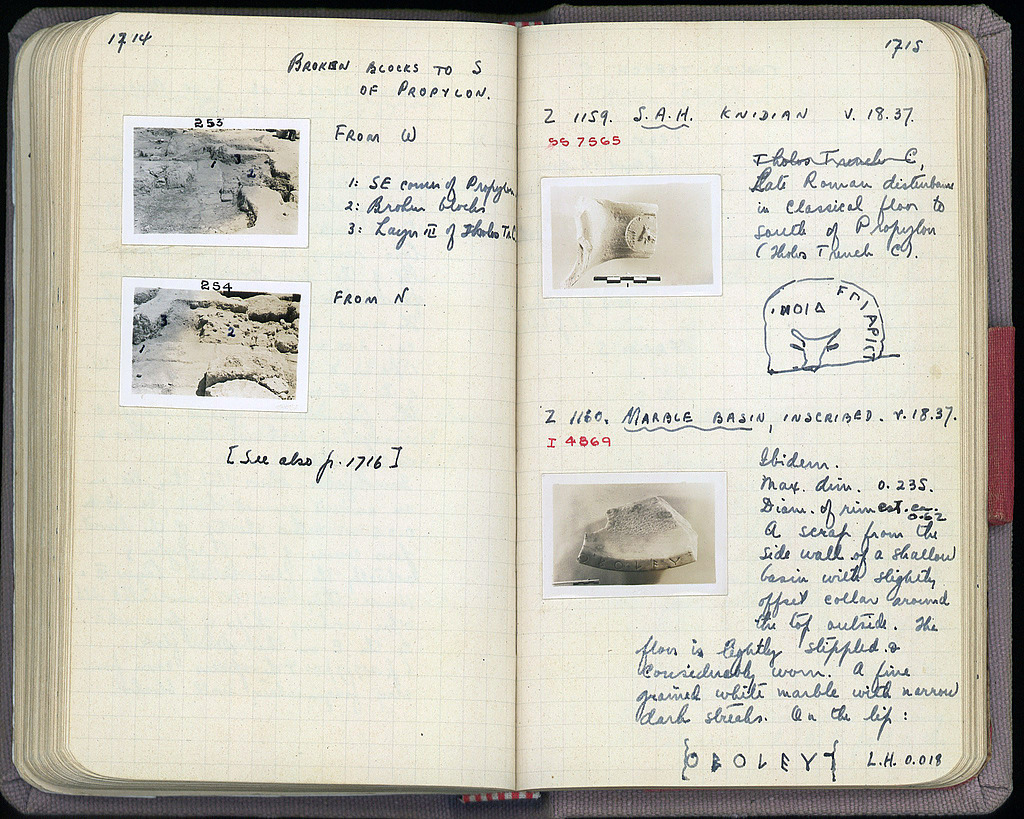 1714
BROKEN BLOCKS TO S
OF PROPYLON.
253
FROM W
1: SE corner of Propylon
2: Broken blocks
3: Layer III of Tholos Tr. C
254
FROM N
1
2
3
[See also p. 1716]
1715
Z 1159. S.A.H. KNIDIAN V.18.37.
SS 7565
Tholos Trench C,
Late Roman disturbance
in Classical floor to
South of Propylon
(Tholos Trench C).
Z 1160. MARBLE BASIN, INSCRIBED. V.18.37.
I 4869
Ibidem.
Max. dim. 0.235.
Diam. of rim est. ca. 0.62
A scrap from the
side wall of a shallow
basin with slightly
offset collar around
the top outside. The
floor is lightly stippled &
considerably worn. A fine
grained white marble with narrow
dark streaks. On the lip:
L.H. 0.018